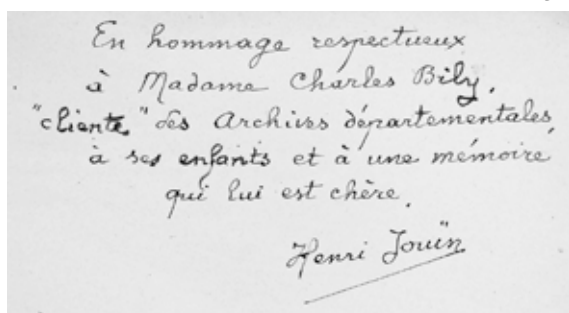 En hommage respectueux
à Madame Charles Bily,
"cliente" des Archives départementales,
à ses enfants et à une mémoire
qui lui est chère.
Henri Jouïn